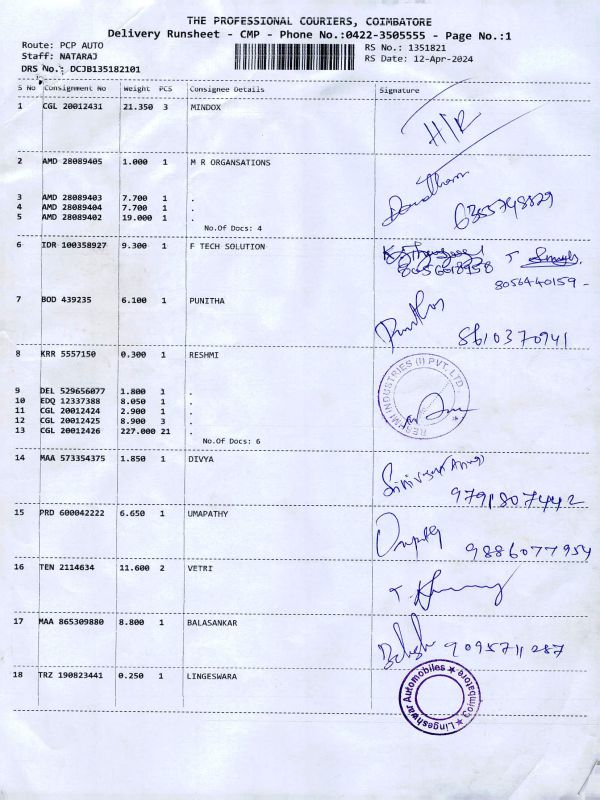 THE PROFESSIONAL COURIERS, COIMBATORE
Delivery Runsheet - CMP - Phone No.:0422-3505555 - Page No.:1
Route: PCP AUTO RS No.: 1351821
Staff: NATARAJ RS Date: 12-Apr-2024
DRS No.: DCJB135182101
S No Consignment No Weight PCS Consignee Details Signature
1 CGL 20012431 21.350 3 MINDOX
H/R
2 AMD 28089405 1.000 1 M R ORGANSATIONS
3 AMD 28089403 7.700 1 .
4 AMD 28089404 7.700 1 .
5 AMD 28089402 19.000 1 .
No.Of Docs: 4
6 IDR 100358927 9.300 1 F TECH SOLUTION
8056618958
8056440159 -
7 BOD 439235 6.100 1 PUNITHA
8610370941
8 KRR 5557150 0.300 1 RESHMI
RESHMI INDUSTRIES (I) PVT. LTD.
9 DEL 529656077 1.800 1 .
10 EDQ 12337388 8.050 1 .
11 CGL 20012424 2.900 1 .
12 CGL 20012425 8.900 3 .
13 CGL 20012426 227.000 21 .
No.Of Docs: 6
14 MAA 573354375 1.850 1 DIVYA
9791807442
15 PRD 600042222 6.650 1 UMAPATHY
9886077954
16 TEN 2114634 11.600 2 VETRI
17 MAA 865309880 8.800 1 BALASANKAR
9095711287
18 TRZ 190823441 0.250 1 LINGESWARA
Lingeshwar Automobiles ★ Coimbatore ★